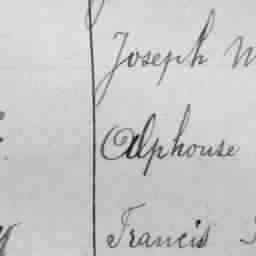 Joseph M
Alphouse
Francis